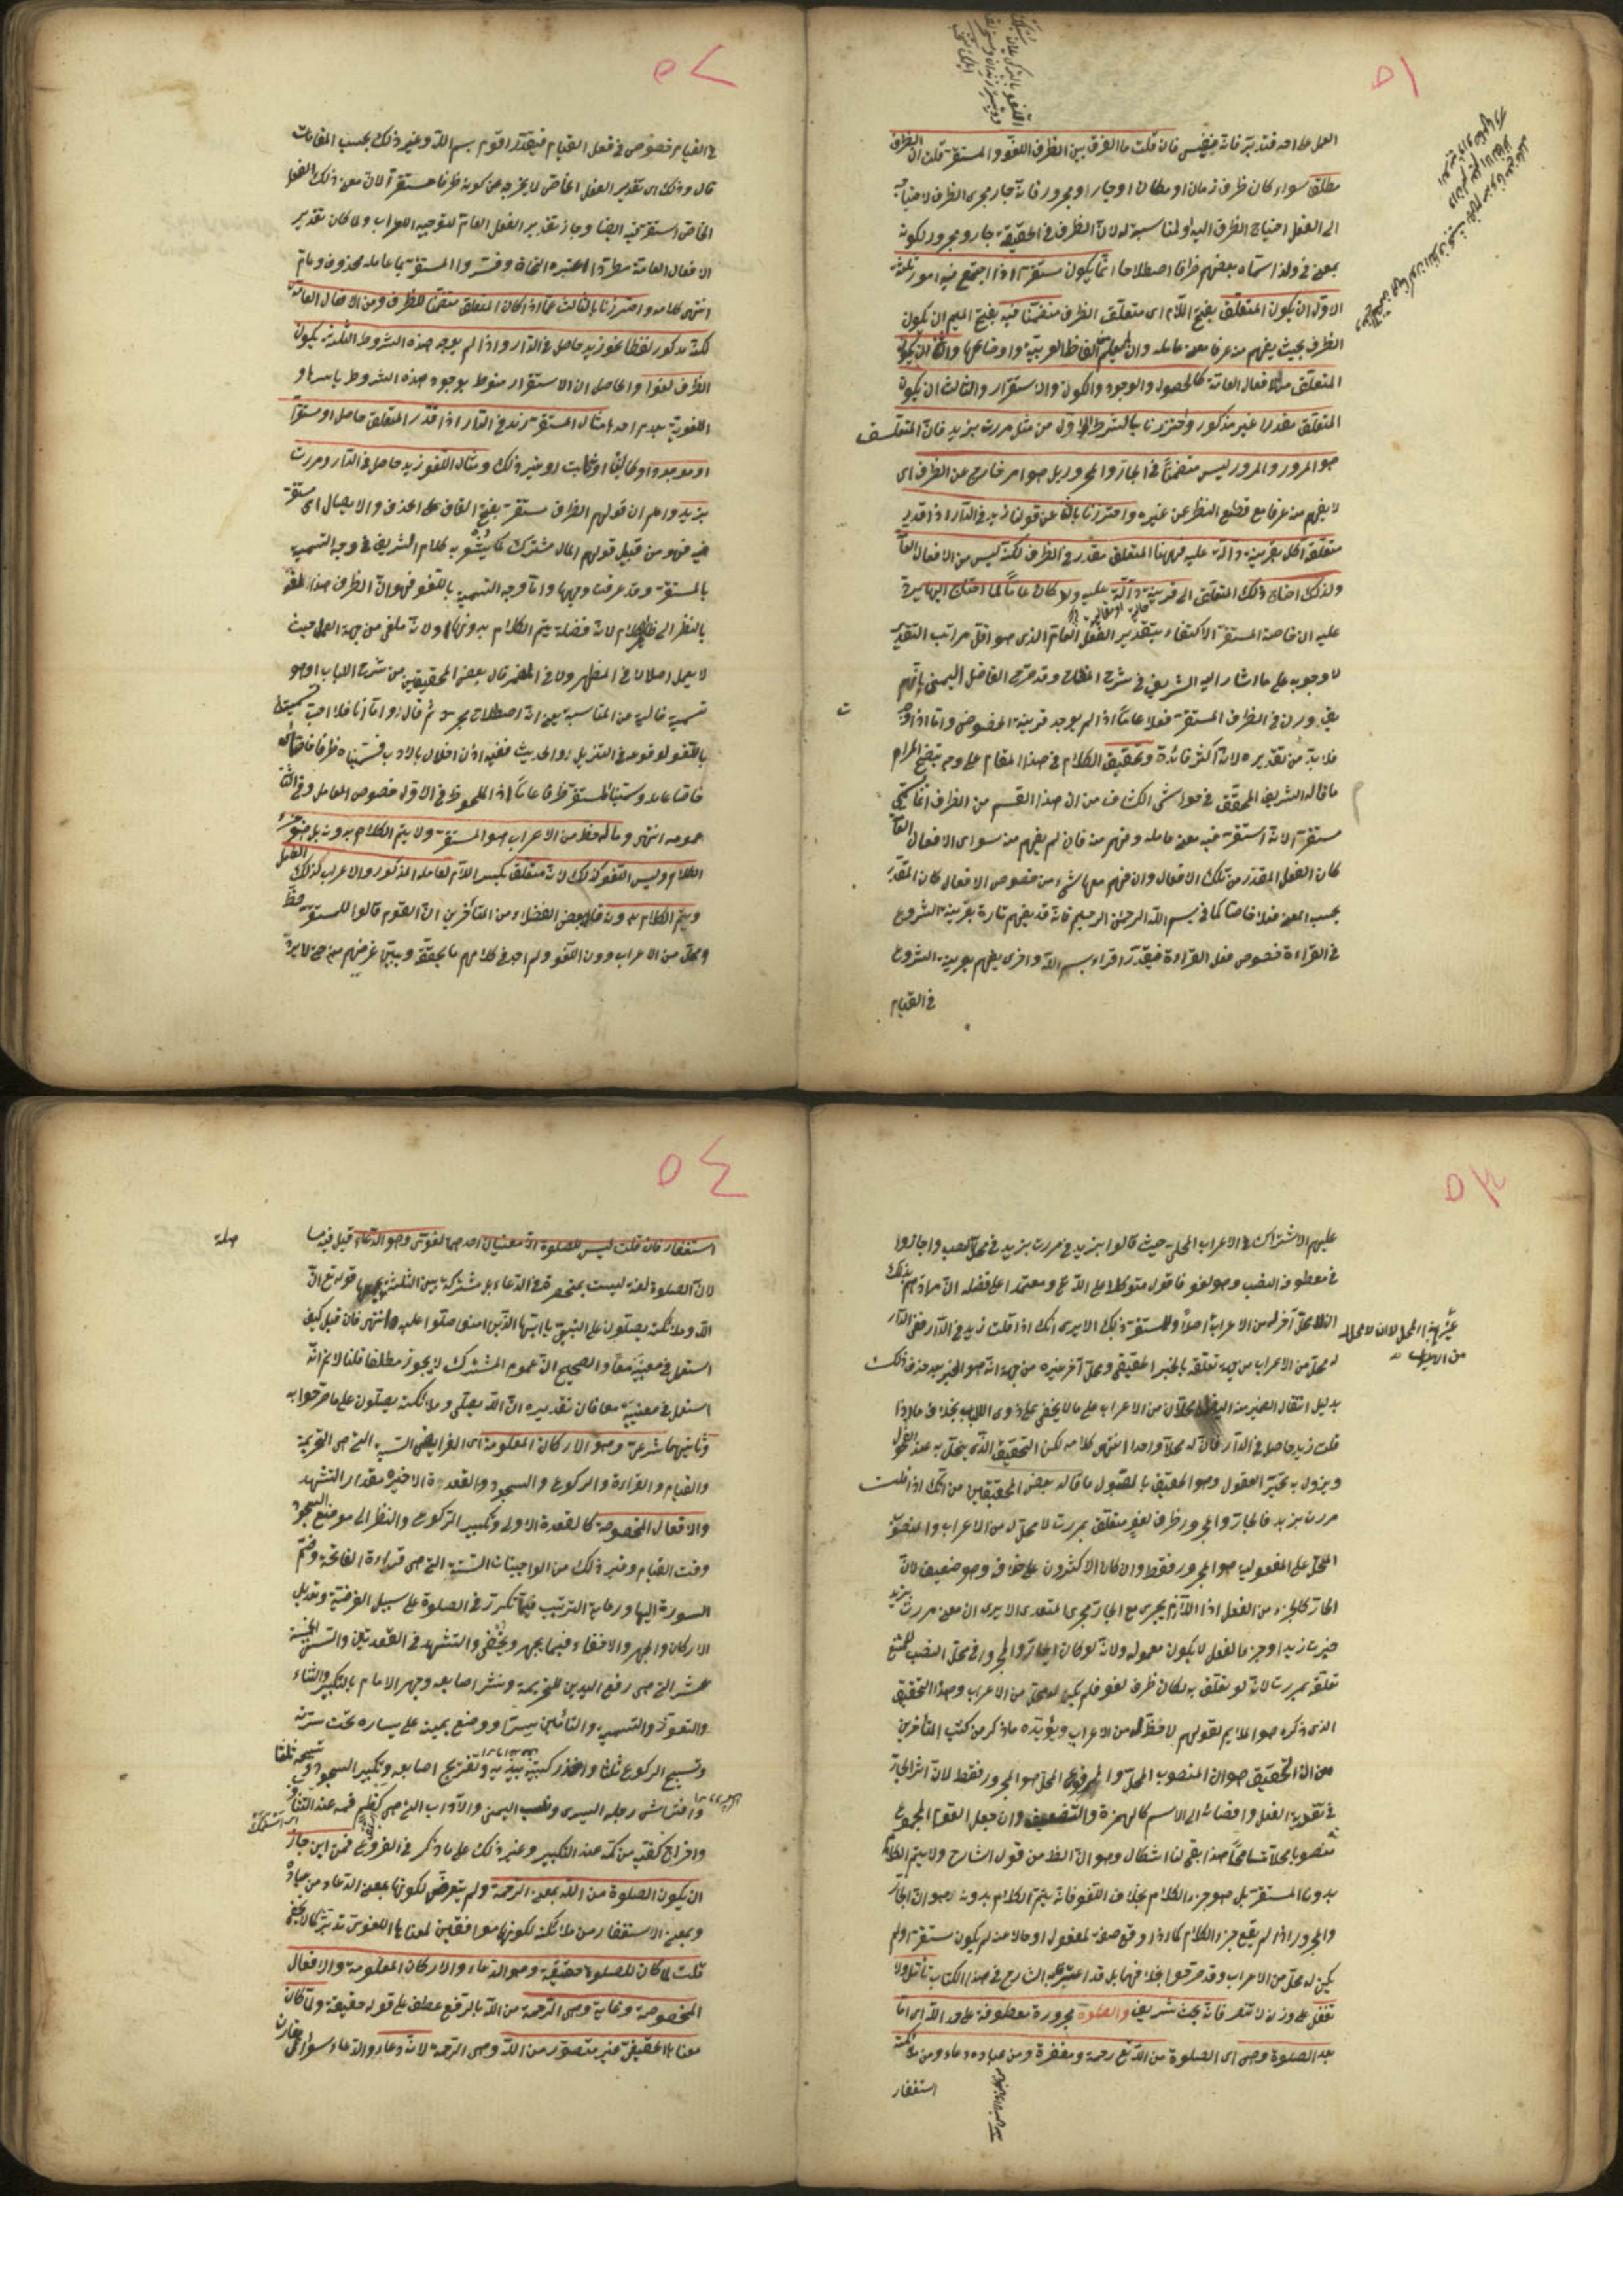 ٥١
العمل على احد فتدبر فانه نفيس فان قلت ما الفرق بين الظرف اللغو والمستقر قلت ان الظرف
مطلقا سواء كان ظرف زمان او مكان او جارا ومجرورا فانه جار مجرى الظرف لاحتياجه
الى الفعل احتياج الظرف اليه ولمناسبة له لان الظرف في الحقيقة جار ومجرور لكونه
بمعنى في ولذا سماه بعضهم ظرفا اصطلاحا انما يكون مستقرا اذا اجتمع فيه امور ثلثة
الاول ان يكون المتعلق بفتح اللام اى متعلق الظرف متضمنا فيه بفتح الميم ان يكون
الظرف بحيث يفهم من عرفا معنى عامله وان لم يعلم الفاظ العربية واوضاعها والثانى ان يكون
المتعلق من الافعال العامة كالحصول والوجود والكون والاستقرار والثالث ان يكون
المتعلق مقدرا غير مذكور واحترزنا بالشرط الاول من مثل مررت بزيد فان المتعلق
هو المرور والمرور ليس متضمنا في الجار والمجرور بل هو امر خارج عن الظرف اى
لا يفهم من عرفا مع قطع النظر عن غيره واحترزنا بالثانى عن قولنا زيد في الدار اذا قدر
متعلقه اكل بقرينة دالة عليه فههنا المتعلق مقدر في الظرف لكنه ليس من الافعال العامة
ولذلك احتاج ذلك المتعلق الى قرينة دالة عليه ولو كان عاما لما احتاج اليها يدل
عليه ان خاصة المستقر الاكتفاء بتقدير الفعل العام الذى هو اقل مراتب التقدير
لا وجوبه على ما اشار اليه الشريف في شرح المفتاح وقد صرح الفاضل اليمنى بانهم
يقدرون في الظرف المستقر فعلا عاما اذا لم يوجد قرينة الخصوص واما اذا وجد
فلا بد من تقديره لانه اكثر فائدة وتحقيق الكلام في هذا المقام على وجه يتضح المرام
ما قاله الشريف المحقق في حواشى الكشاف من ان هذا القسم من الظرف انما سمى
مستقرا لانه استقر فيه معنى عامله وفهم منه فان لم يفهم منه سوى الافعال العامة
كان الفعل المقدر من تلك الافعال وان فهم معها شئ من خصوص الافعال كان المقدر
بحسب المعنى فعلا خاصا كما في بسم الله الرحمن الرحيم فانه قد يفهم تارة بقرينة الشروع
في القراءة خصوص فعل القراءة فيقدر اقراء بسم الله واخرى يفهم بقرينة الشروع
في القيام
٥٢
في القيام خصوص فعل القيام فيقدر اقوم بسم الله وغير ذلك بحسب المقامات
قال وذلك اى تقدير الفعل الخاص لا يخرجه عن كونه ظرفا مستقرا لان معنى ذلك الفعل
الخاص استقر فيه ايضا وجاز تقدير الفعل العام لتوجيه الاعراب ولما كان تقدير
الافعال العامة مطردا اعتبره النحاة وفسروا المستقر بما عامله محذوف وعام
انتهى كلامه واحترزنا بالثالث عما اذا كان المتعلق متضمنا للظرف ومن الافعال العامة
لكنه مذكور لفظا نحو زيد حاصل في الدار واذا لم يوجد هذه الشروط الثلثة يكون
الظرف لغوا والحاصل ان الاستقرار منوط بوجود هذه الشروط باسرها و
اللغوية بعدم احد امثال المستقر زيد في الدار اذا قدر المتعلق حاصل او مستقر
او موجود او كائن او ثابت او غير ذلك ومثال اللغو زيد حاصل في الدار ومررت
بزيد واعلم ان قولهم الظرف مستقر بفتح القاف على الحذف والايصال اى مستقر
فيه فهو من قبيل قولهم المال مشترك كما يشعر به كلام الشريف في وجه التسمية
بالمستقر وقد عرفت وجهها واما وجه التسمية باللغو فهو ان الظرف هذا لغو
بالنظر الى ظاهر الكلام لانه فضلة يتم الكلام بدونها ولانه ملغى من جهة العمل حيث
لا يعمل اصلا لا في المظهر ولا في المضمر قال بعض المحققين من شرح اللباب وهو
تسمية خالية من المناسبة يعنى انه اصطلاح مجرد ثم قال واما انا فلا احب تسميته
باللغو لوقوعه في التنزيل والحديث ففيه اذن اخلال بالادب فسميناه ظرفا خاصا
خاصا عامله وسمينا المستقر ظرفا عاما اذ الملحوظ في الاول خصوص العامل وفي الثانى
عمومه انتهى وماله حظ من الاعراب هو المستقر ولا يتم الكلام بدونه بل هو جزء
الكلام وليس اللغو كذلك لانه متعلق بكسر اللام لعامله المذكور والاعراب لذلك العامل
ويتم الكلام بدونه قال بعض الفضلاء من المتأخرين ان القوم قالوا للمستقر حظ
ومحل من الاعراب دون اللغو ولم اجد في كلامهم ما يحققه ويبين غرضهم منه حتى لا يرد
٥٣
عليهم الاشتراك في الاعراب المحلى حيث قالوا بزيد في مررت بزيد في محل النصب واجازوا
في معطوفه النصب وهو لغو فاقول متوكلا على الله تع ومعتمدا على فضله ان مرادهم بذلك
ان لا محل آخر له من الاعراب اصلا وللمستقر ذلك الا يرى انك اذا قلت زيد في الدار ففى الدار
له محل من الاعراب من جهة تعلقه بالخبر الحقيقى ومحل آخر غيره من جهة انه هو الخبر بعد حذف ذلك
بدليل انتقال الضمير منه اليه فله محلان من الاعراب على ما لا يخفى على ذوى الالباب بخلاف ما اذا
قلت زيد حاصل في الدار فان له محلا واحدا انتهى كلامه لكن التحقيق الذى ينحل به عند العقول
ويزول به تحير العقول وهو الحقيق بالقبول ما قاله بعض المحققين من انك اذا قلت
مررت بزيد فالجار والمجرور ظرف لغو متعلق بمررت لا محل له من الاعراب والمنصوب
المحل على المفعولية هو المجرور فقط وان كان الاكثرون على خلافه وهو ضعيف لان
الجار كالجزء من الفعل اذ اللازم يجرى مع الجار مجرى المتعدى الا يرى ان معنى مررت بزيد
جزت زيدا وجزء الفعل لا يكون معموله ولانه لو كان الجار والمجرور في محل النصب لامتنع
تعلقه بمررت لانه لو تعلق به لكان ظرف لغو فلم يكن له محل من الاعراب وهذا التحقيق
الذى ذكره هو الملايم لقولهم لا حظ له من الاعراب ويؤيده ما ذكر من كتب المتأخرين
من ان التحقيق هو ان المنصوب المحل والمرفوع المحل هو المجرور فقط لان اثر الجار
في تقوية الفعل وافضائه الى الاسم كالهمزة والتضعيف وان جعل القوم المجموع
منصوبا محلا تسامحا هذا بقى لنا اشكال وهو ان الظاهر من قول الشارح ولا يتم الكلام
بدون المستقر بل هو جزء الكلام بخلاف اللغو فانه يتم الكلام بدونه هو ان الجار
والمجرور اذا لم يقع جزء الكلام كما اذا وقع صفة لمفعول او حالا عنه لم يكون مستقرا ولم
يكن له محل من الاعراب وقد صرحوا بخلافهما بل قد اعترف به الشارح في هذا الكتاب تأمل ولا
تغفل على وزن لا تنصر فانه بحث شريف والصلوة مجرورة معطوفة على حمد الله اى اما
بعد الصلوة وهى اى الصلوة من الله تع رحمة ومغفرة ومن عباده دعاء ومن ملائكته
استغفار
٥٤
استغفار فان قلت ليس للصلوة الا معنيان احدهما لغوى وهو الدعاء قيل فيه ما
لان الصلوة لغة ليست بمنحصرة في الدعاء بل مشتركة بين الثلثة قوله تع ان
الله وملائكته يصلون على النبى يا ايها الذين امنوا صلوا عليه انتهى فان قيل كيف
استعمل في معنييه معا والصحيح ان عموم المشترك لا يجوز مطلقا قلنا لا نم انه
استعمل في معنييه معا فان تقديره ان الله يصلى وملائكته يصلون على ما صرحوا به
وثانيهما شرعى وهو الاركان المعلومة اى الفرايض الستة التى هى التحريمة
والقيام والقراءة والركوع والسجود والقعدة الاخيرة مقدار التشهد
والافعال المخصوصة كالقعدة الاولى وتكبير الركوع والنظر الى موضع السجود
وقت القيام وغير ذلك من الواجبات الستة التى هى قراءة الفاتحة وضم
السورة اليها ورعاية الترتيب فيما تكرر في الصلوة على سبيل الفرضية وتعديل
الاركان والجهر والاخفاء فيما يجهر ويخفى والتشهد في القعدتين والسنن الخمسة
عشر التى هى رفع اليدين للتحريمة ونشر اصابعه وجهر الامام بالتكبير والثناء
والتعوذ والتسمية والتأمين سرا ووضع يمينه على يساره تحت سرته
وتسبيح الركوع ثلثا واخذ ركبتيه بيديه وتفريج اصابعه وتكبير السجود وتسبيحه ثلثا
وافتراش رجله اليسرى ونصب اليمنى والآداب التى هى كظم فمه عند التثاؤب
واخراج كفيه من كمه عند التكبير وغير ذلك على ما ذكر في الفروع فمن اين جاز
ان يكون الصلوة من الله بمعنى الرحمة ولم يتعرض لكونها بمعنى الدعاء من عباده
وبمعنى الاستغفار من ملائكته لكونها موافقين لمعناها اللغوى تدبر كما لا يخفى
قلت لما كان للصلوة حقيقة وهو الدعاء والاركان المعلومة والافعال
المخصوصة وغاية وهى الرحمة من الله بالرفع عطف على قوله حقيقة ولما كان
معناها الحقيقى غير متصور من الله وهى الرحمة لانه دعاء والدعاء سؤال